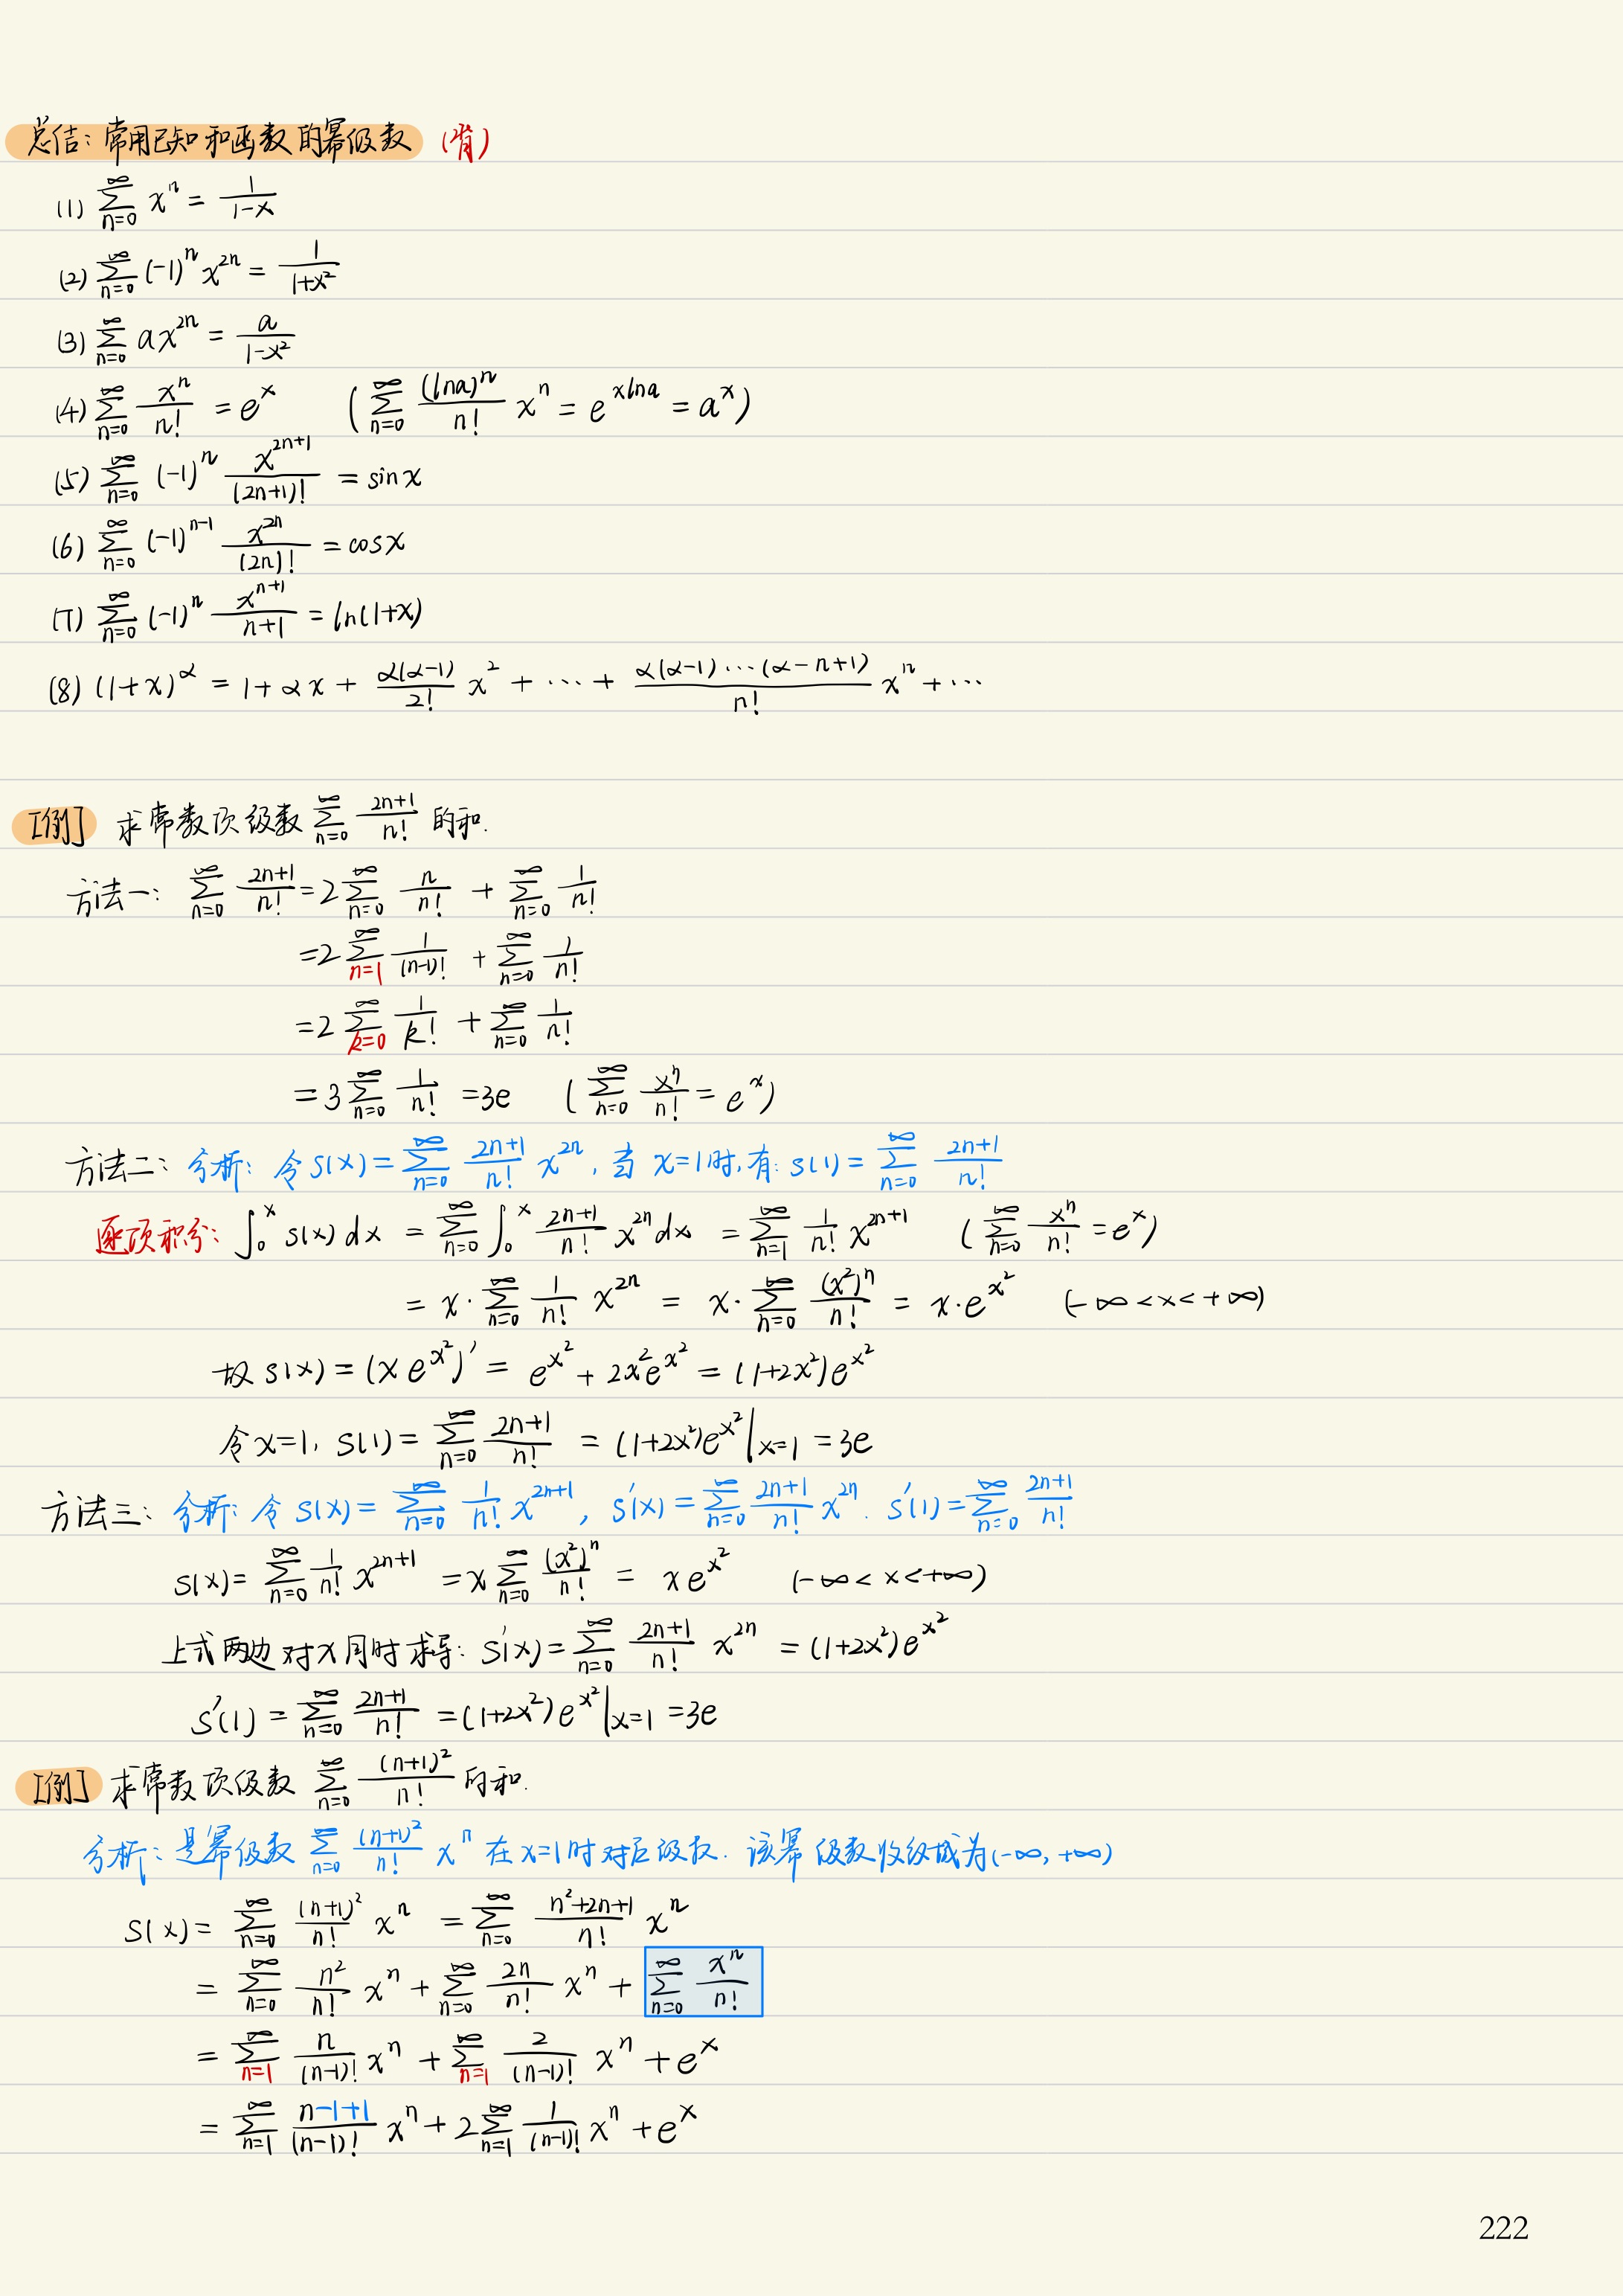 总结：常用已知和函数的幂级数 (背)
(1) $\sum_{n=0}^{\infty} x^n = \frac{1}{1-x}$
(2) $\sum_{n=0}^{\infty} (-1)^n x^{2n} = \frac{1}{1+x^2}$
(3) $\sum_{n=0}^{\infty} a x^{2n} = \frac{a}{1-x^2}$
(4) $\sum_{n=0}^{\infty} \frac{x^n}{n!} = e^x$ ($\sum_{n=0}^{\infty} \frac{(\ln a)^n}{n!} x^n = e^{x\ln a} = a^x$)
(5) $\sum_{n=0}^{\infty} (-1)^n \frac{x^{2n+1}}{(2n+1)!} = \sin x$
(6) $\sum_{n=0}^{\infty} (-1)^{n-1} \frac{x^{2n}}{(2n)!} = \cos x$
(7) $\sum_{n=0}^{\infty} (-1)^n \frac{x^{n+1}}{n+1} = \ln(1+x)$
(8) $(1+x)^\alpha = 1+\alpha x + \frac{\alpha(\alpha-1)}{2!} x^2 + \cdots + \frac{\alpha(\alpha-1)\cdots(\alpha-n+1)}{n!} x^n + \cdots$
[例] 求常数项级数 $\sum_{n=0}^{\infty} \frac{2n+1}{n!}$ 的和.
方法一： $\sum_{n=0}^{\infty} \frac{2n+1}{n!} = 2\sum_{n=0}^{\infty} \frac{n}{n!} + \sum_{n=0}^{\infty} \frac{1}{n!}$
$= 2\sum_{n=1}^{\infty} \frac{1}{(n-1)!} + \sum_{n=0}^{\infty} \frac{1}{n!}$
$= 2\sum_{k=0}^{\infty} \frac{1}{k!} + \sum_{n=0}^{\infty} \frac{1}{n!}$
$= 3\sum_{n=0}^{\infty} \frac{1}{n!} = 3e$ ($\sum_{n=0}^{\infty} \frac{x^n}{n!} = e^x$)
方法二：分析：令 $S(x) = \sum_{n=0}^{\infty} \frac{2n+1}{n!} x^{2n}$, 当 $x=1$ 时, 有: $S(1) = \sum_{n=0}^{\infty} \frac{2n+1}{n!}$
逐项积分: $\int_0^x S(x)dx = \sum_{n=0}^{\infty} \int_0^x \frac{2n+1}{n!} x^{2n}dx = \sum_{n=1}^{\infty} \frac{1}{n!} x^{2n+1}$ ($\sum_{n=0}^{\infty} \frac{x^n}{n!} = e^x$)
$= x \cdot \sum_{n=0}^{\infty} \frac{1}{n!} x^{2n} = x \cdot \sum_{n=0}^{\infty} \frac{(x^2)^n}{n!} = x \cdot e^{x^2}$ $(-\infty < x < +\infty)$
故 $S(x) = (x e^{x^2})' = e^{x^2} + 2x^2 e^{x^2} = (1+2x^2)e^{x^2}$
令 $x=1$, $S(1) = \sum_{n=0}^{\infty} \frac{2n+1}{n!} = (1+2x^2)e^{x^2}|_{x=1} = 3e$
方法三：分析：令 $S(x) = \sum_{n=0}^{\infty} \frac{1}{n!} x^{2n+1}$, $S'(x) = \sum_{n=0}^{\infty} \frac{2n+1}{n!} x^{2n}$. $S'(1) = \sum_{n=0}^{\infty} \frac{2n+1}{n!}$
$S(x) = \sum_{n=0}^{\infty} \frac{1}{n!} x^{2n+1} = x\sum_{n=0}^{\infty} \frac{(x^2)^n}{n!} = x e^{x^2}$ $(-\infty < x < +\infty)$
上式两边对x同时求导: $S'(x) = \sum_{n=0}^{\infty} \frac{2n+1}{n!} x^{2n} = (1+2x^2)e^{x^2}$
$S'(1) = \sum_{n=0}^{\infty} \frac{2n+1}{n!} = (1+2x^2)e^{x^2}|_{x=1} = 3e$
[例] 求常数项级数 $\sum_{n=0}^{\infty} \frac{(n+1)^2}{n!}$ 的和.
分析：是幂级数 $\sum_{n=0}^{\infty} \frac{(n+1)^2}{n!} x^n$ 在 $x=1$ 时对应级数. 该幂级数收敛域为$(-\infty, +\infty)$
$S(x) = \sum_{n=0}^{\infty} \frac{(n+1)^2}{n!} x^n = \sum_{n=0}^{\infty} \frac{n^2+2n+1}{n!} x^n$
$= \sum_{n=0}^{\infty} \frac{n^2}{n!} x^n + \sum_{n=0}^{\infty} \frac{2n}{n!} x^n + \sum_{n=0}^{\infty} \frac{x^n}{n!}$
$= \sum_{n=1}^{\infty} \frac{n}{(n-1)!} x^n + \sum_{n=1}^{\infty} \frac{2}{(n-1)!} x^n + e^x$
$= \sum_{n=1}^{\infty} \frac{n-1+1}{(n-1)!} x^n + 2\sum_{n=1}^{\infty} \frac{1}{(n-1)!} x^n + e^x$
222